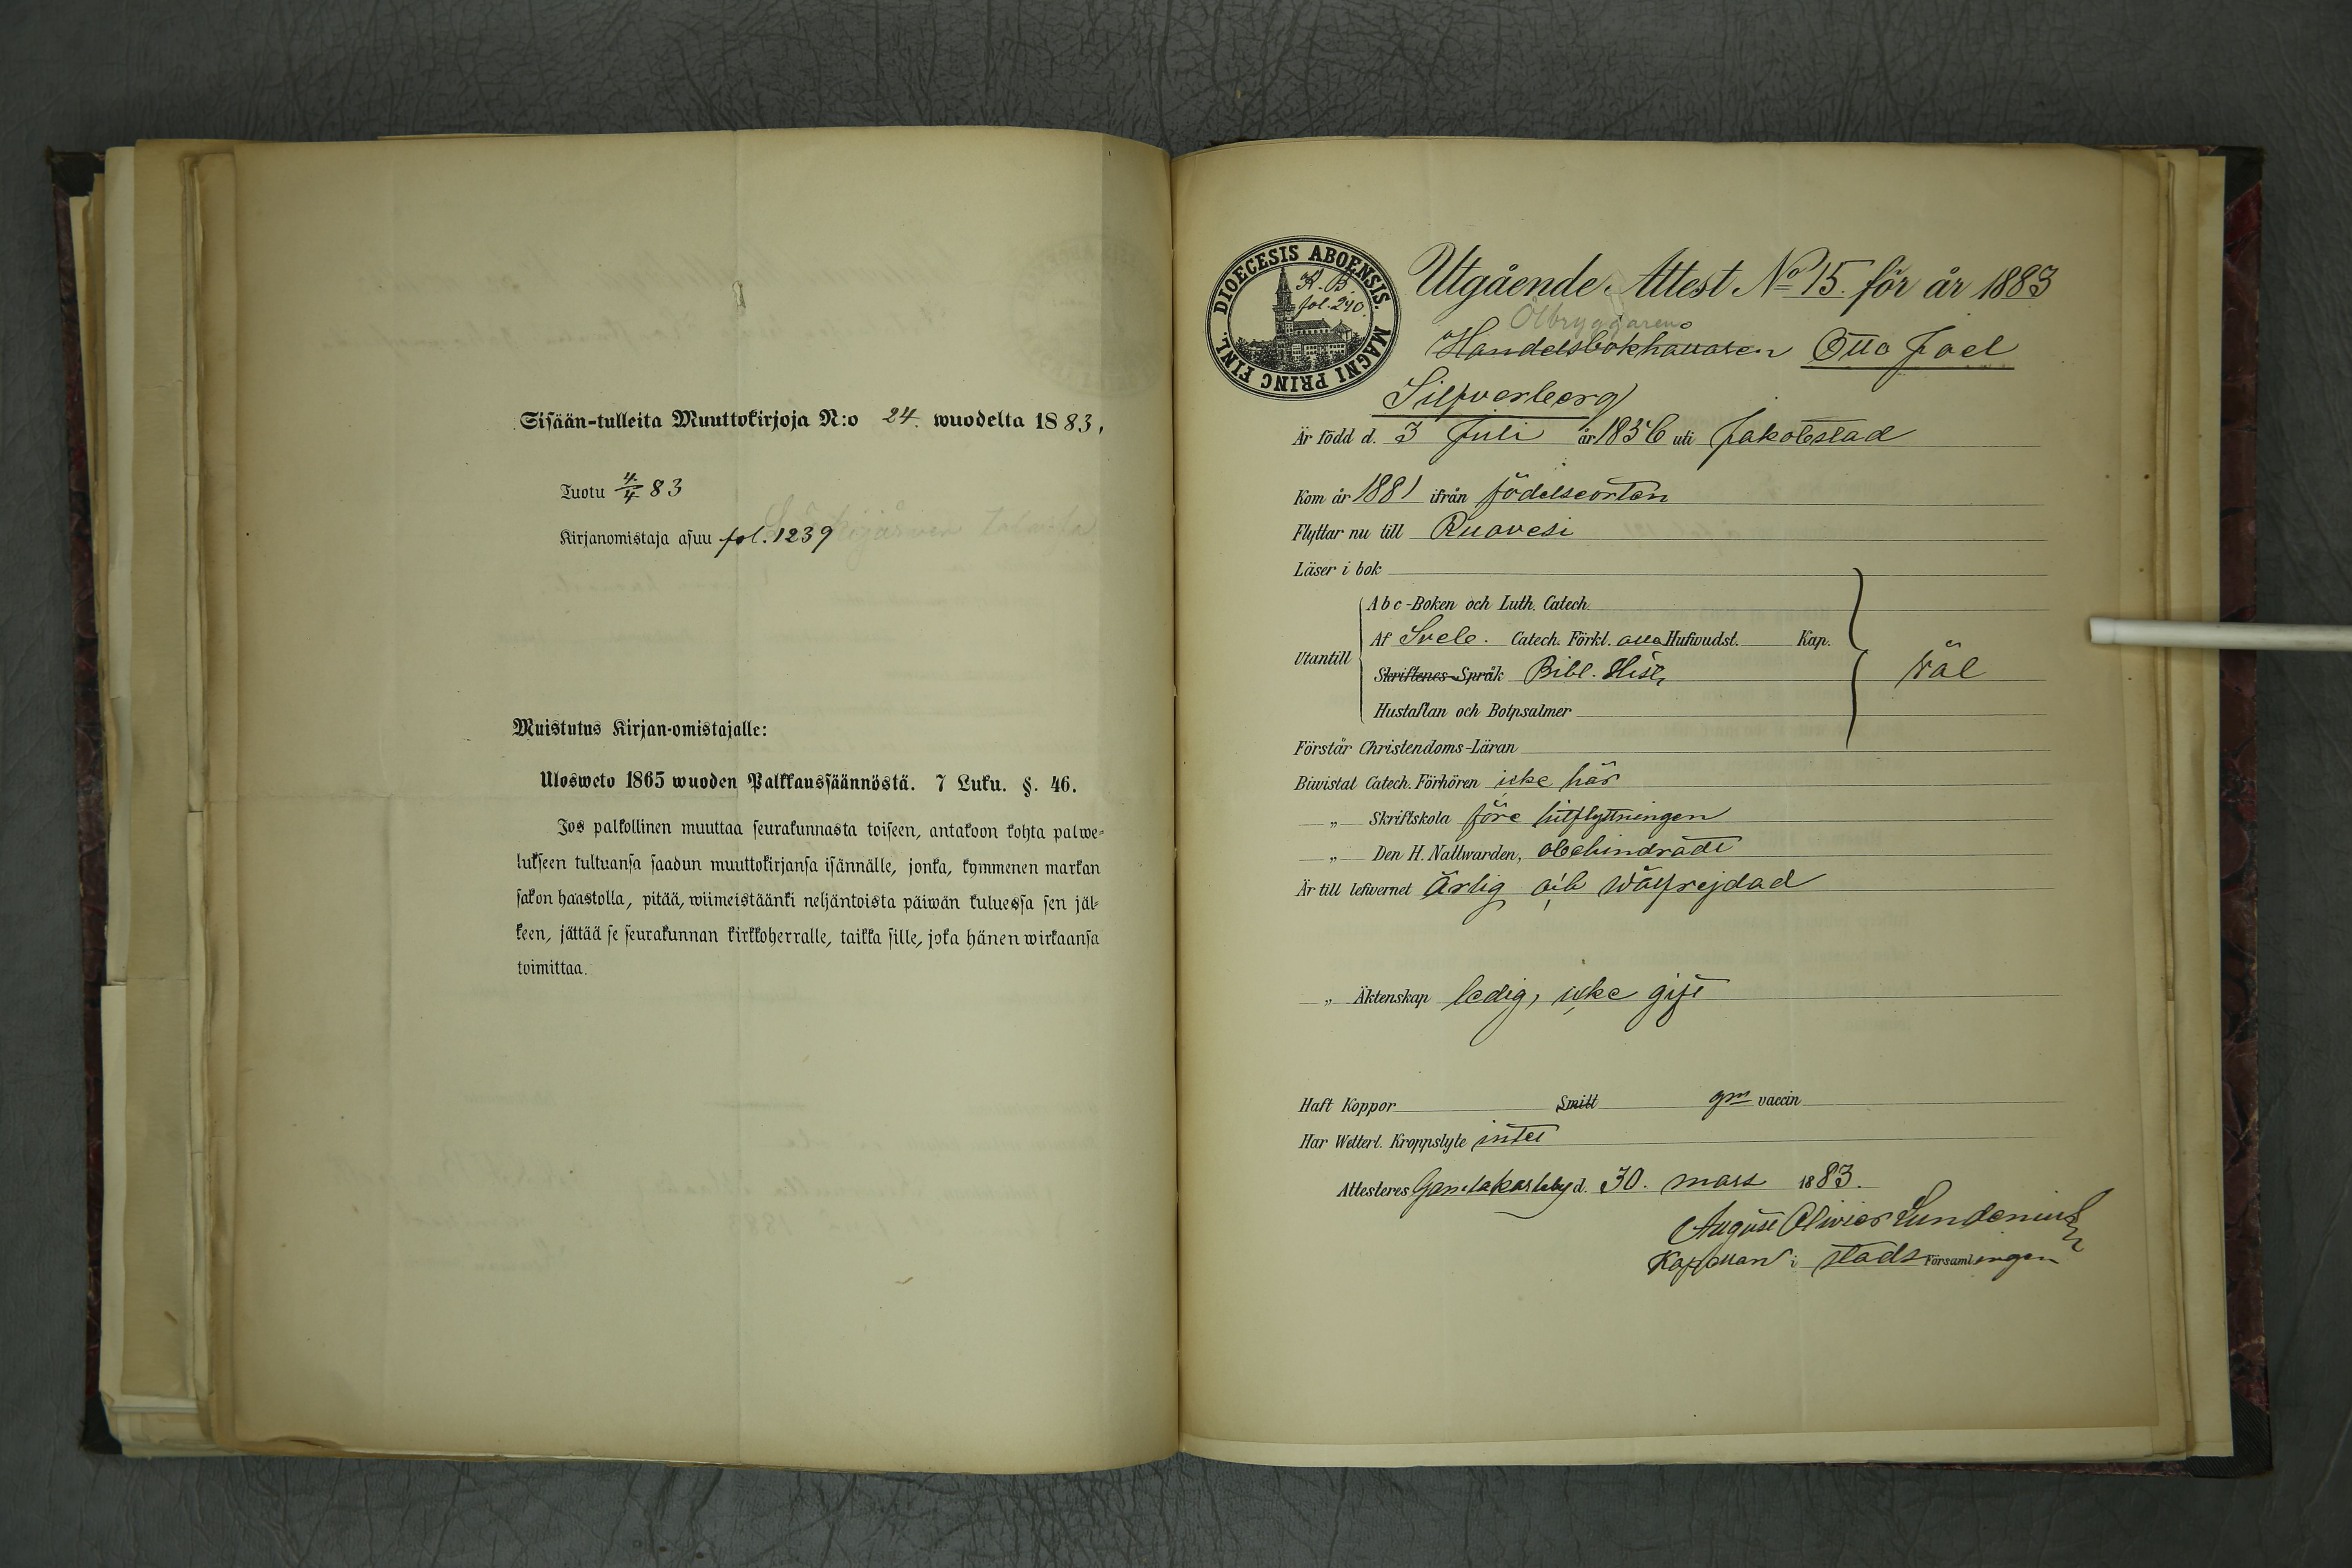 Sisään-tulleita Muuttokirjoja N:o 24. wuodelta 1883,
Tuotu 4/4 83
Kirjanomistaja asuu fol. 1239
Muistutus Kirjan-omistajalle:
Ulosweto 1865 wuoden Palkkaussäännöstä. 7 Luku. §. 46.
Jos palkollinen muuttaa seurakunnasta toiseen, antakoon kohta palwe-
lukseen tultuansa saadun muuttokirjansa isännälle, jonka, kymmenen markan
sakon haastolla, pitää, wiimeistäänki neljäntoista päiwän kuluessa sen jäl-
keen, jättää se seurakunnan kirkkoherralle, taikka sille, joka hänen wirkaansa
toimittaa.
DIOECESIS ABOENSIS. MAGNI PRINC FINL.
K. B.
fol. 240.
Utgående Attest No 15. för år 1883
Ölbryggaren
Handelsbokhållaren Otto Joel
Silfverberg
Är född d. 3 Juli år 1856 uti Jakobstad
Kom år 1881 ifrån födelseorten
Flyttar nu till Ruovesi
Läser i bok
Utantill
Abc-Boken och Luth. Catech.
Af Sveb. Catech. Förkl. alla Hufwudst. Kap.
Skriftenes Språk Bibl. Hist.
Hustaflan och Botpsalmer
wäl
Förstår Christendoms-Läran
Biwistat Catech. Förhören icke här
„ Skriftskola före hitflyttningen
„ Den H. Nattwarden, obehindradt
Är till lefwernet ärlig och wälfrejdad
„ Äktenskap ledig, icke gift
Haft Koppor Smitt gm vaccin
Har Wetterl. Kroppslyte intet
Attesteras Gamlakarleby d. 30. mars 1883.
August Oliver Lundenius
Kapellan i stads Församlingen